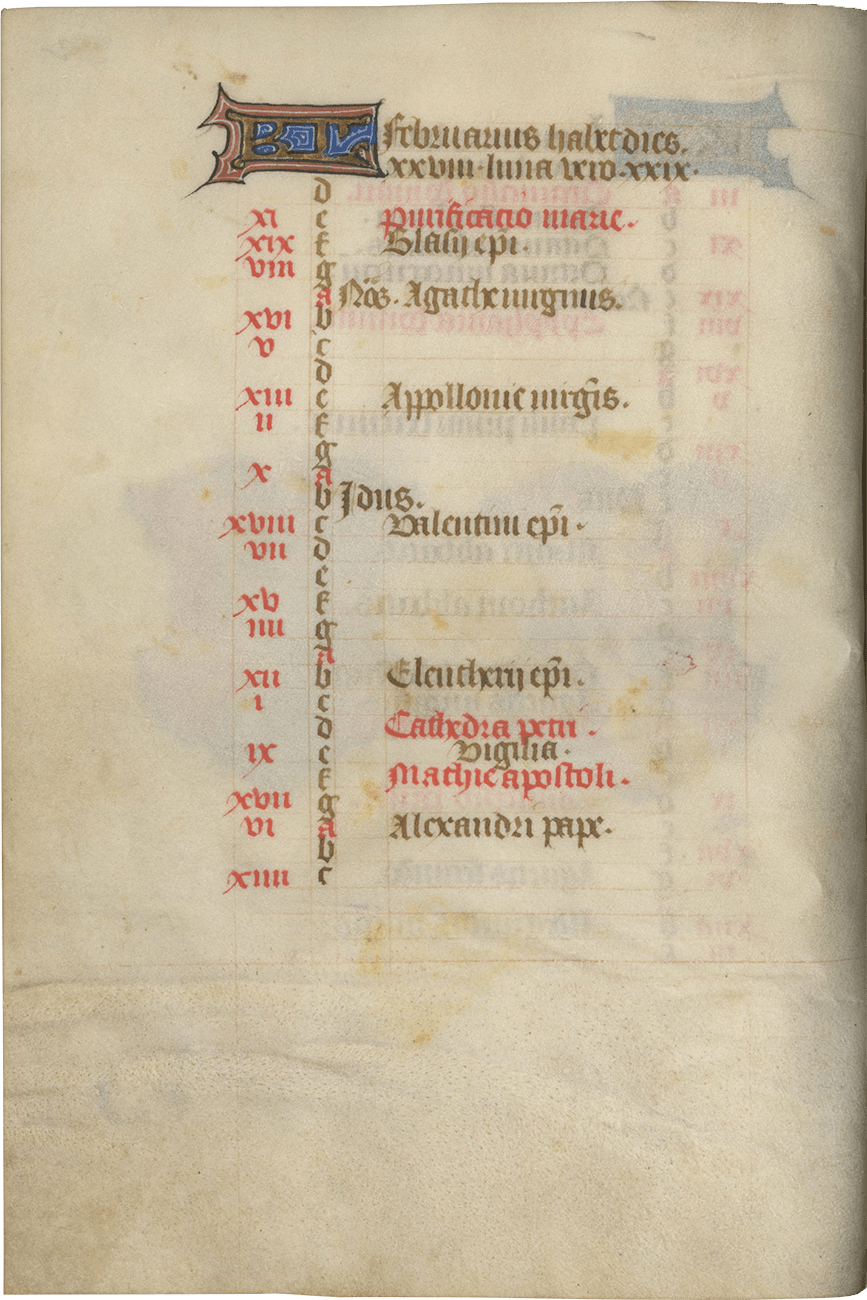 KL Februarius habet dies.
xxviii. luna vero. xxix.
d
xi e Purificatio marie.
xix f Blasij ep̄i.
viii g
a Nōs. Agathe uirginis.
xvi b
v c
d
xiii e Appollonie uirḡis.
ii f
g
x a
b Idus.
xviii c Valentini ep̄i.
vii d
e
xv f
iiii g
a
xii b Eleutherij ep̄i.
i c
d Cathedra petri.
ix e Vigilia.
f Mathie apostoli.
xvii g
vi a Alexandri pape.
b
xiiii c